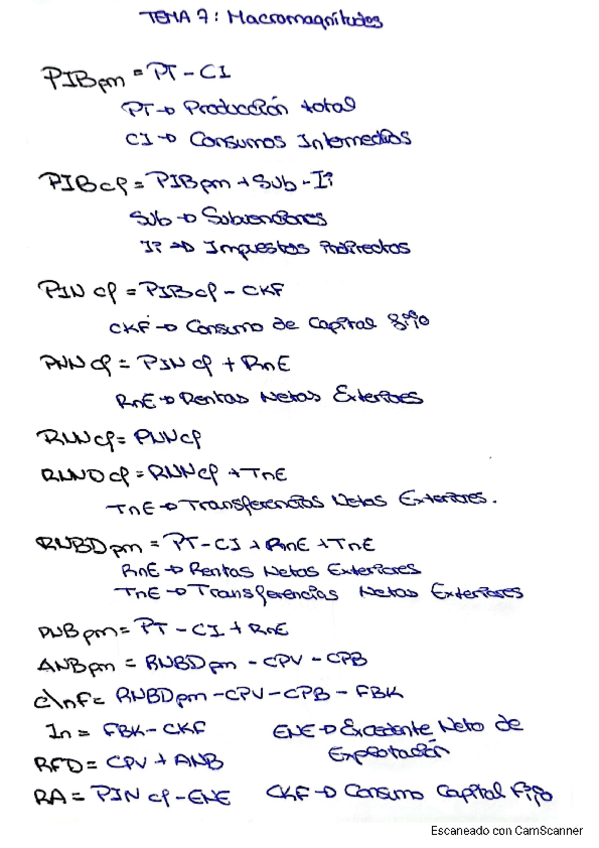 TEMA 7: Macromagnitudes
PIBpm = PT - CI
PT → Producción total
CI → Consumos Intermedios
PIBcf = PIBpm + Sub - Ii
Sub → Subvenciones
Ii → Impuestos Indirectos
PIN cf = PIBcf - CKF
CKF → Consumo de Capital fijo
PNN cf = PIN cf + RnE
RnE → Rentas Netas Exteriores
RNNcf = PNNcf
RNND cf = RNNcf + TnE
TnE → Transferencias Netas Exteriores.
RNBDpm = PT - CI + RnE + TnE
RnE → Rentas Netas Exteriores
TnE → Transferencias Netas Exteriores
PNBpm = PT - CI + RnE
ANBpm = RNBDpm - CPV - CPB
c\nf = RNBDpm - CPV - CPB - FBK
In = FBK - CKF ENE → Excedente Neto de
Explotación
RFD = CPV + ANB
RA = PIN cf - ENE CKF → Consumo Capital Fijo
Escaneado con CamScanner